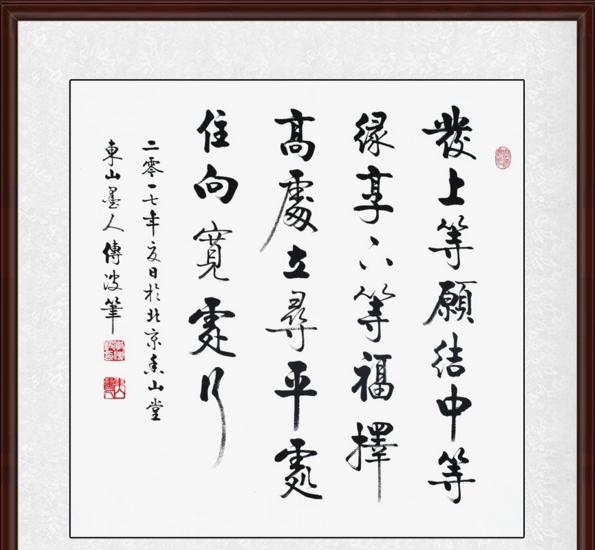 發上等願結中等
緣享下等福擇
高處立尋平處
住向寬處行
二零一七年夏日於北京山堂
東山墨人傳波筆